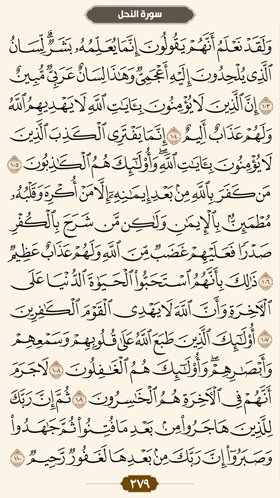 سورة النحل
وَلَقَدْ نَعْلَمُ أَنَّهُمْ يَقُولُونَ إِنَّمَا يُعَلِّمُهُۥ بَشَرٌۗ لِّسَانُ
ٱلَّذِى يُلْحِدُونَ إِلَيْهِ أَعْجَمِىٌّ وَهَٰذَا لِسَانٌ عَرَبِىٌّ مُّبِينٌ
١٠٣ إِنَّ ٱلَّذِينَ لَا يُؤْمِنُونَ بِـَٔايَٰتِ ٱللَّهِ لَا يَهْدِيهِمُ ٱللَّهُ
وَلَهُمْ عَذَابٌ أَلِيمٌ ١٠٤ إِنَّمَا يَفْتَرِى ٱلْكَذِبَ ٱلَّذِينَ
لَا يُؤْمِنُونَ بِـَٔايَٰتِ ٱللَّهِۖ وَأُو۟لَٰٓئِكَ هُمُ ٱلْكَٰذِبُونَ ١٠٥
مَن كَفَرَ بِٱللَّهِ مِنۢ بَعْدِ إِيمَٰنِهِۦٓ إِلَّا مَنْ أُكْرِهَ وَقَلْبُهُۥ
مُطْمَئِنٌّۢ بِٱلْإِيمَٰنِ وَلَٰكِن مَّن شَرَحَ بِٱلْكُفْرِ
صَدْرًا فَعَلَيْهِمْ غَضَبٌ مِّنَ ٱللَّهِ وَلَهُمْ عَذَابٌ عَظِيمٌ
١٠٦ ذَٰلِكَ بِأَنَّهُمُ ٱسْتَحَبُّوا۟ ٱلْحَيَوٰةَ ٱلدُّنْيَا عَلَى
ٱلْـَٔاخِرَةِ وَأَنَّ ٱللَّهَ لَا يَهْدِى ٱلْقَوْمَ ٱلْكَٰفِرِينَ
١٠٧ أُو۟لَٰٓئِكَ ٱلَّذِينَ طَبَعَ ٱللَّهُ عَلَىٰ قُلُوبِهِمْ وَسَمْعِهِمْ
وَأَبْصَٰرِهِمْۖ وَأُو۟لَٰٓئِكَ هُمُ ٱلْغَٰفِلُونَ ١٠٨ لَا جَرَمَ
أَنَّهُمْ فِى ٱلْـَٔاخِرَةِ هُمُ ٱلْخَٰسِرُونَ ١٠٩ ثُمَّ إِنَّ رَبَّكَ
لِلَّذِينَ هَاجَرُوا۟ مِنۢ بَعْدِ مَا فُتِنُوا۟ ثُمَّ جَٰهَدُوا۟
وَصَبَرُوٓا۟ إِنَّ رَبَّكَ مِنۢ بَعْدِهَا لَغَفُورٌ رَّحِيمٌ ١١٠
٢٧٩